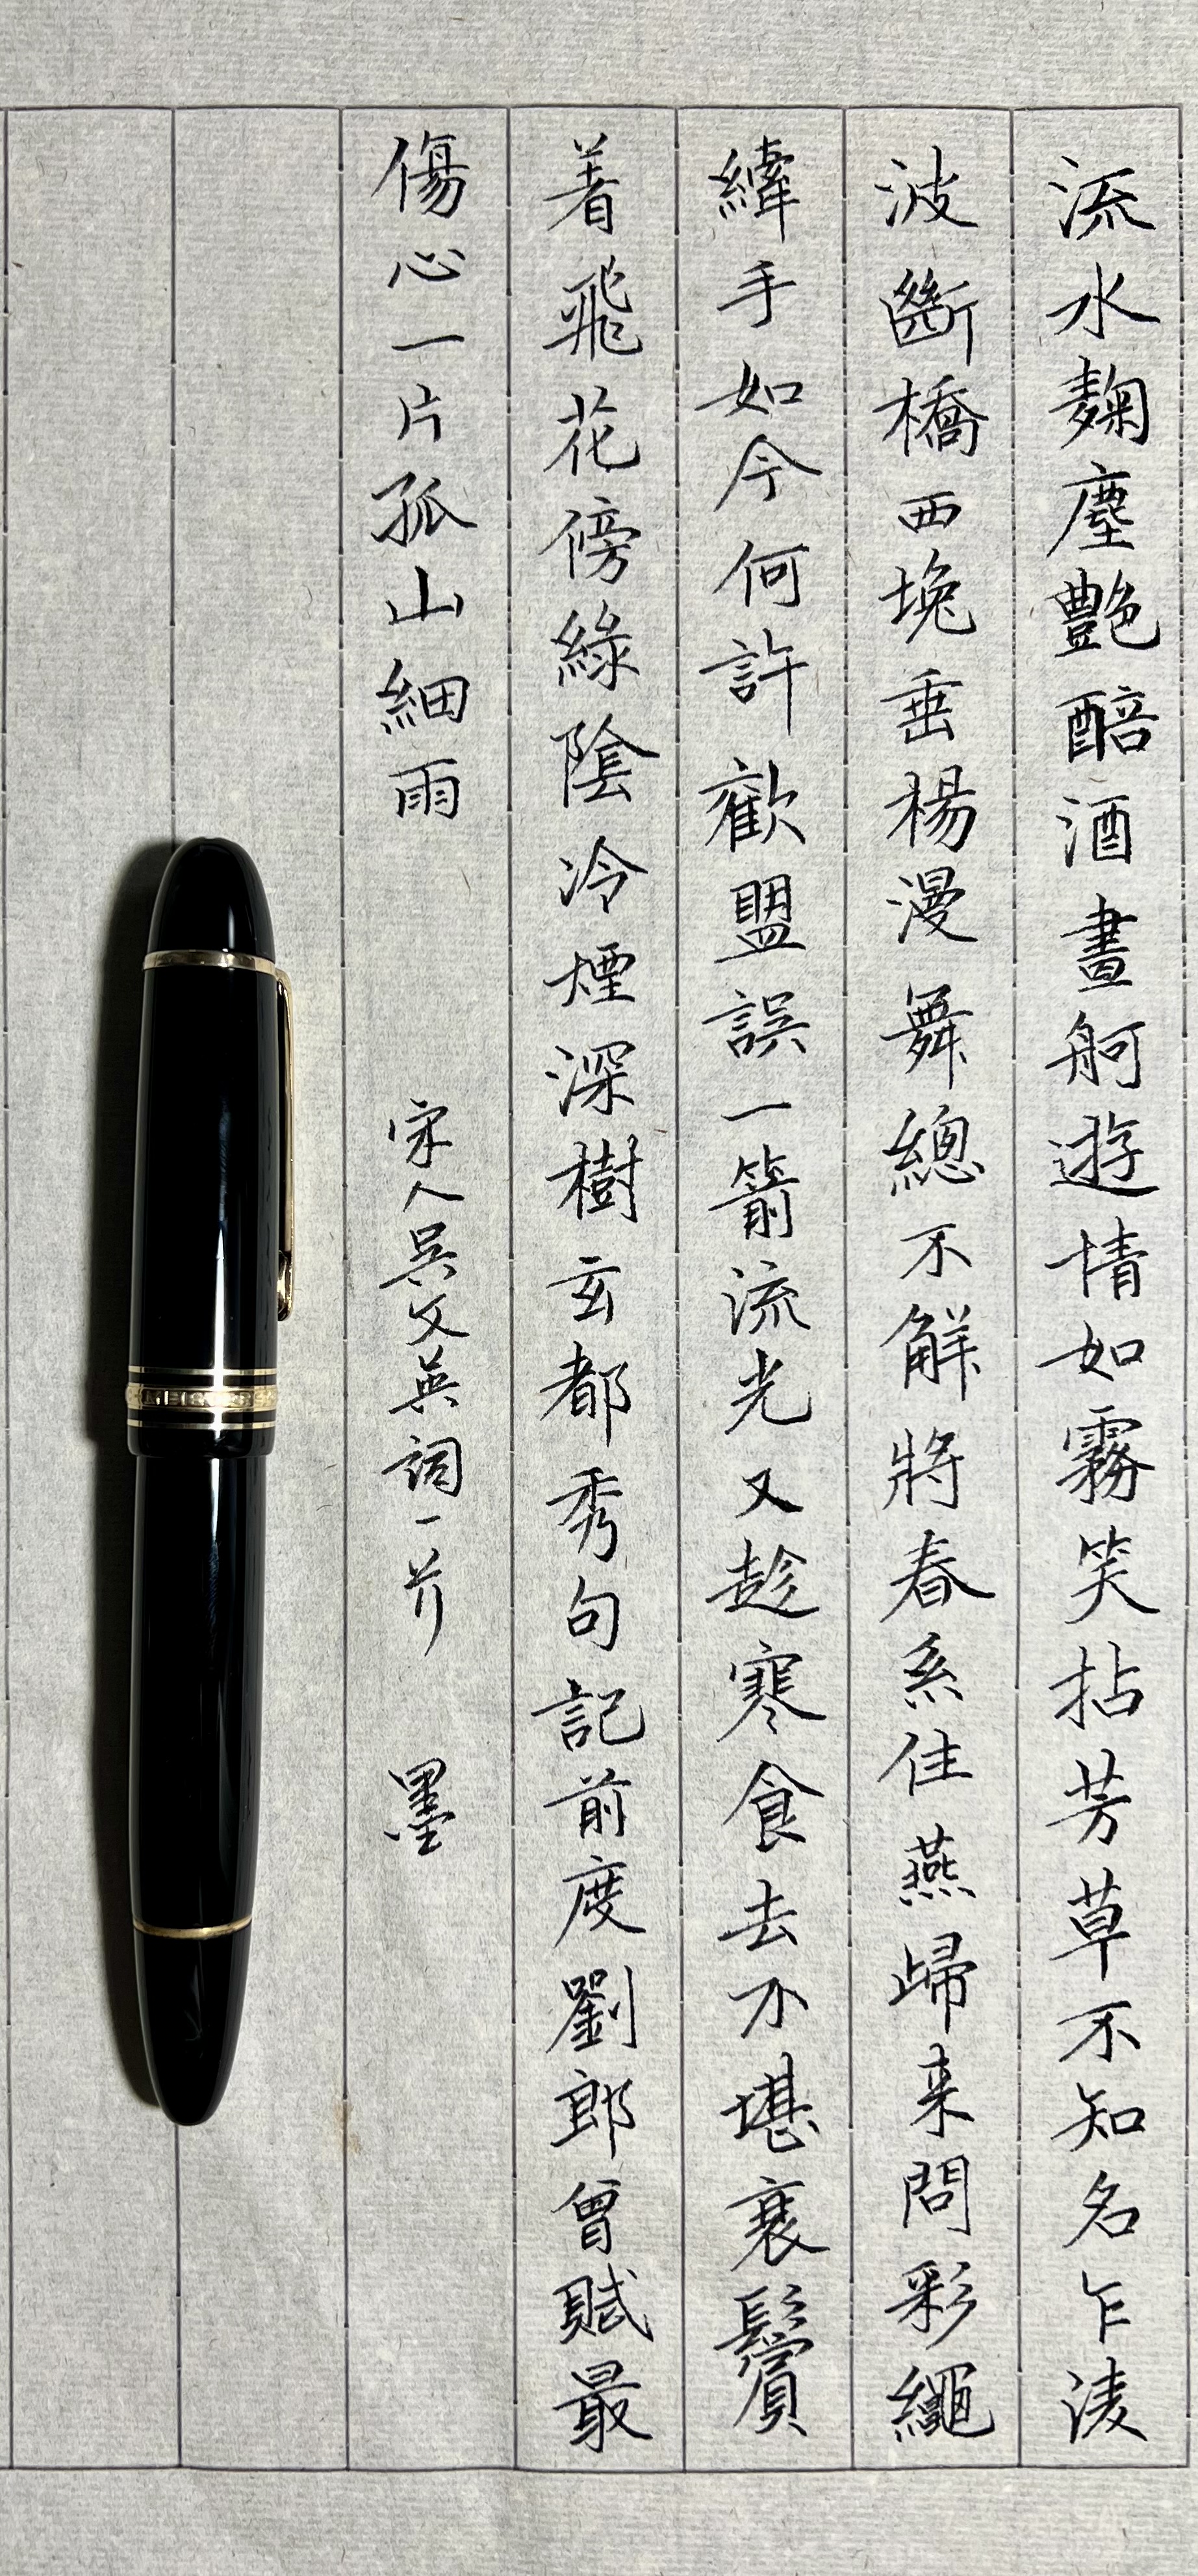 流水麹塵艷醅酒畫舸遊情如霧笑拈芳草不知名乍淩
波斷橋西堍垂楊漫舞總不解將春系住燕歸来問彩繩
纖手如今何許歡盟誤一箭流光又趁寒食去不堪衰鬢
着飛花傍綠陰冷煙深樹玄都秀句記前度劉郎曾賦最
傷心一片孤山細雨
宋人吴文英詞一首 墨